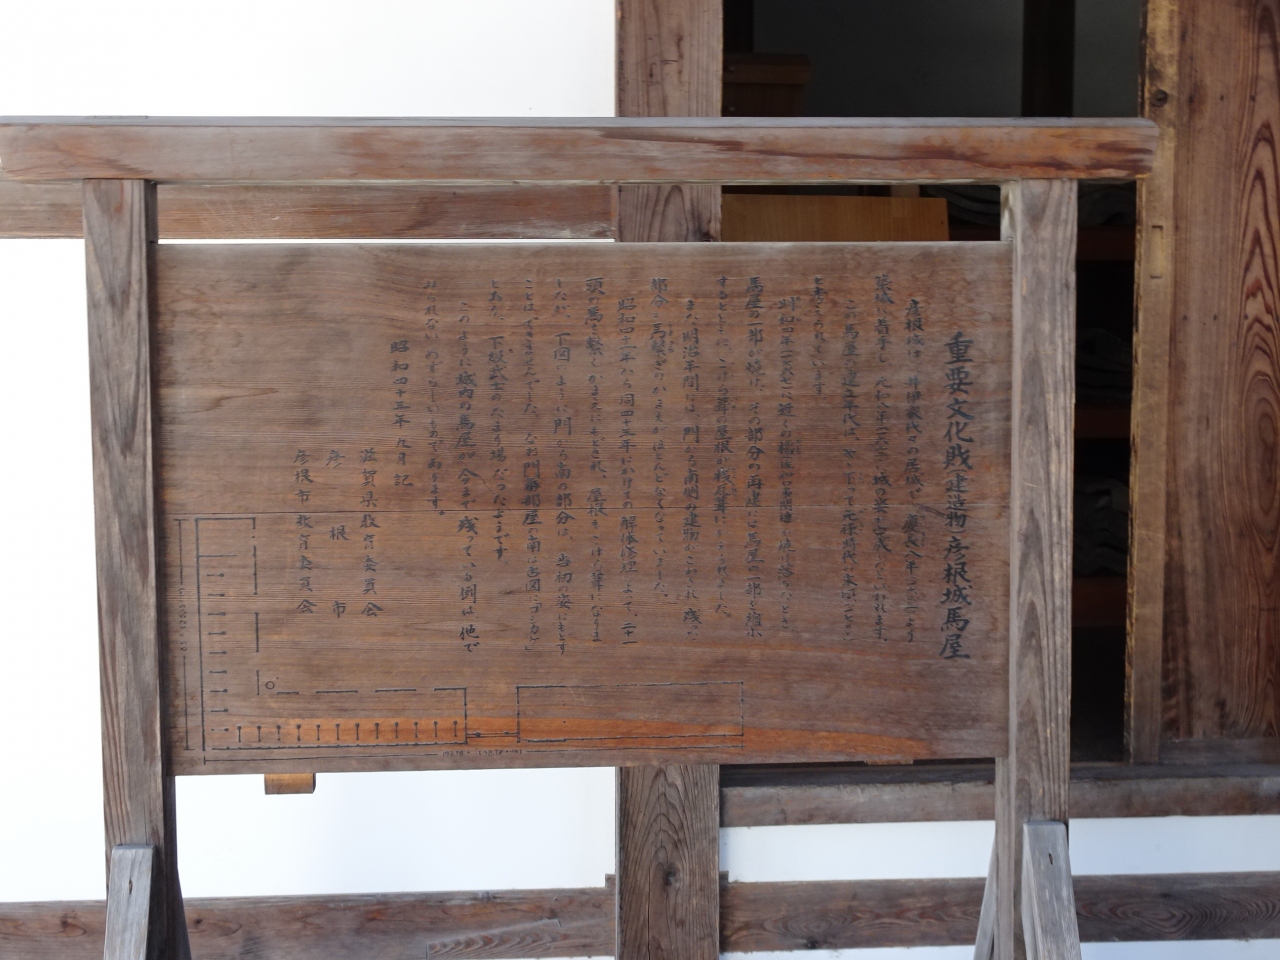 重要文化財(建造物)彦根城馬屋
彦根城は、井伊家代々の居城で、慶長八年(一六〇三)より
築城に着手し、元和八年(一六二二)城の姿が完成したといわれます。
この馬屋の建立年代は、やゝ下って元禄時代(一六八八〜一七〇三)
昭和四年(一七六七)に近くの
馬屋の一部が焼け、その部分の再建に馬屋の一部を縮小
するとともに、こけら葺の屋根が桟瓦葺に
また、明治年間には、門から南側の建物がこわされ、残った
部分も馬繋ぎのかまえがほとんどなくなっていました。
昭和四十一年から同四十三年にかけての解体修理によって、二十一
頭の馬を繋ぐかまえにもどされ、屋根もこけら葺になりま
したが、下図のように門から南の部分は、当初の姿にもどす
ことはできませんでした。なお門番部屋の南は古図に
とあり、下級武士のたまり場だったようです
このように城内の馬屋が今まで残っている例は他で
みられないめずらしいものであります。
昭和四十三年九月記
滋賀県教育委員会
彦根市
彦根市教育委員会